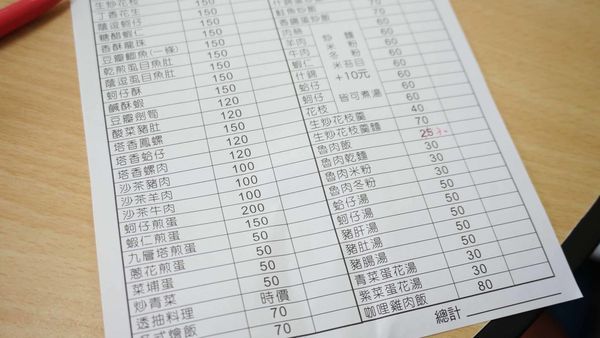 生炒花枝 150
丁香花生 150
蔭豆蚵仔 150
糖醋蝦仁 150
香酥龍珠 150
(一條) 150
乾煎虱目魚肚 150
蔭逗虱目魚肚 150
蚵仔酥 150
鹹酥蝦 120
豆瓣劍筍 120
酸菜豬肚 150
塔香鳳螺 120
塔香蛤仔 120
塔香螺肉 100
沙茶豬肉 100
沙茶羊肉 100
沙茶牛肉 200
蚵仔煎蛋 150
蝦仁煎蛋 50
九層塔煎蛋 50
蔥花煎蛋 50
菜埔蛋 50
炒青菜 時價
透抽料理 70
式燴飯 70
香腸蛋炒飯 60
肉絲 60
羊肉 炒麵 60
牛肉 米粉 60
蝦仁 冬粉 60
什錦 米苔目 60
蛤仔 +10元 60
蚵仔 60
花枝 皆可煮湯 60
生炒花枝羹 40
生炒花枝羹麵 70
魯肉飯 25
魯肉乾麵 30
魯肉米粉 30
魯肉冬粉 30
蛤仔湯 50
蚵仔湯 50
豬肝湯 50
豬肚湯 50
豬腸湯 50
青菜蛋花湯 30
紫菜蛋花湯 30
咖哩雞肉飯 80
總計